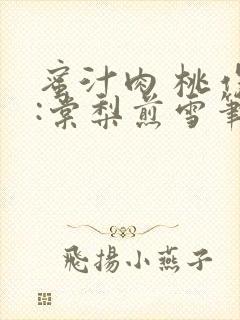 蜜汁肉桃作
:棠梨煎雪筆
飛揚小燕子